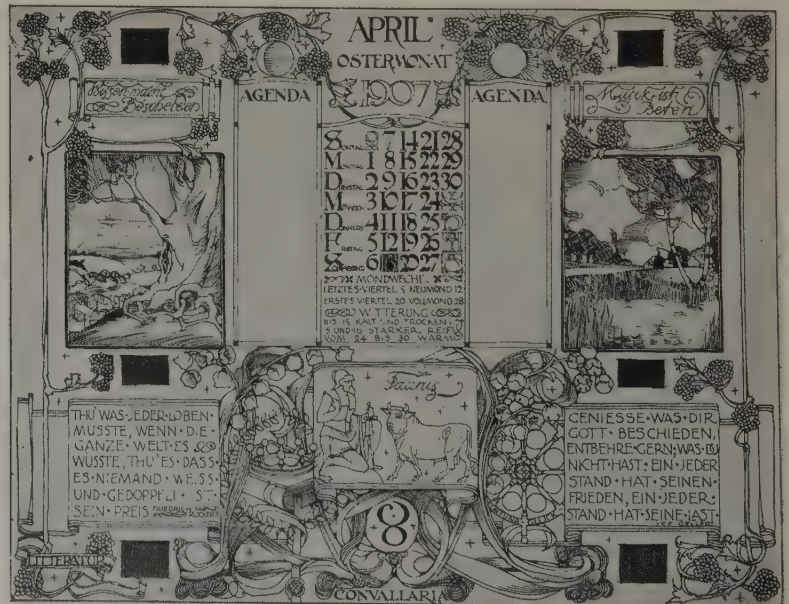 APRIL
OSTERMONAT
1907
AGENDA
AGENDA
Bescheiden
Musik ist
Beten
SONTAG 7 14 21 28
MONTAG 1 8 15 22 29
DIENSTAG 2 9 16 23 30
MITTWOCH 3 10 17 24
DONNERS 4 11 18 25
FREITAG 5 12 19 26
6 20 27
MONDWECHSEL
LETZTES VIERTEL 5 NEUMOND 12
ERSTES VIERTEL 20 VOLLMOND 28
WITTERUNG
BIS 15 KALT UND TROCKEN
5 UND 16 STARKER REIF
VOM 24 BIS 30 WARM
THU WAS JEDER LOBEN
MUSSTE, WENN DIE
GANZE WELT ES
WUSSTE, THU ES DASS
ES NIEMAND WEISS
UND GEDOPPELT IST
SEIN PREIS
GENIESSE·WAS·DIR
GOTT BESCHIEDEN,
ENTBEHRE·GERN·WAS·DU
NICHT·HAST·EIN·JEDER
STAND·HAT·SEINEN
FRIEDEN, EIN·JEDER·
STAND·HAT·SEINE·LAST·
GELLERT
8
LITTERATUR
CONVALLARIA